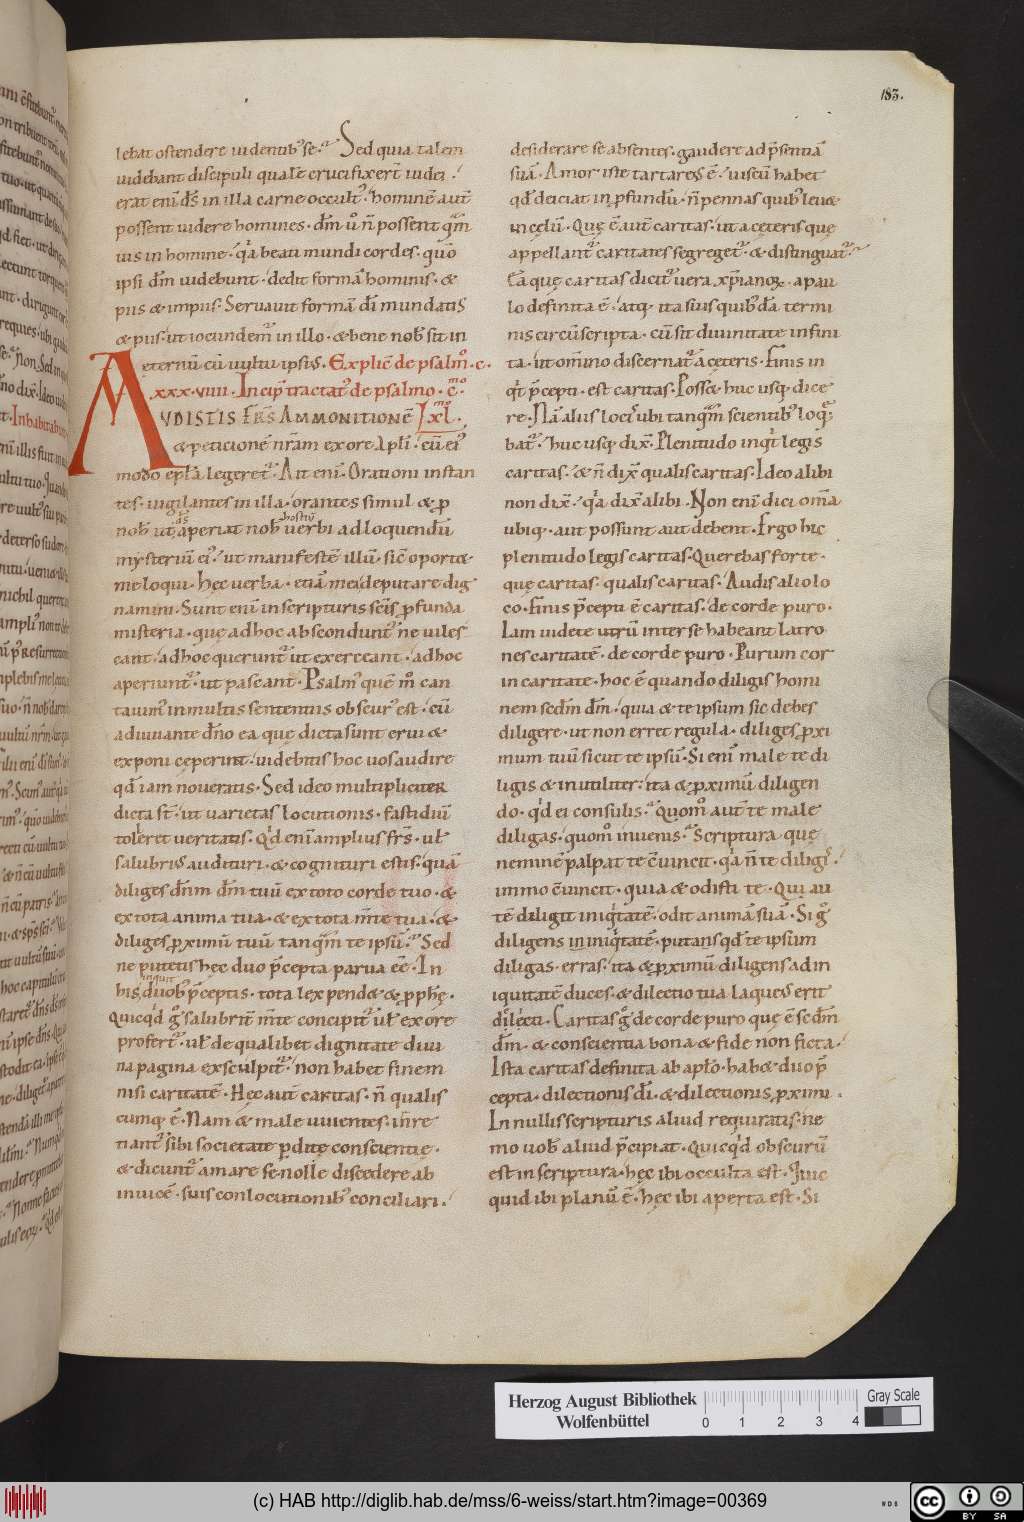 183.
lebat ostendere uidentib; se. Sed quia talem
uidebant discipuli qualē crucifixert̄ iudei.
erat eni d̄s in illa carne occult; hominē aut̄
possent uidere homines. dm̄ ů n̄ possent
uis in homine. qa beati mundi cordes. quo
ipsi dm̄ uidebunt. dedit formā hominis. &
piis & impiis. Seruauit formā dī mundatis
& piis. ut iocundemr̄ in illo. & bene nob̄ sit in
ęternū cū uultu ipsius. Explic̄ de psalmo. c.
xxx.viiii. Incip̄ tractat; de psalmo. c.mo
AUDISTIS FR̄S AMMONITIONĒ I xl.mo
& peticionē nr̄am ex ore apli. cū ei;
modo epl̄a legeret̄. Ait eni. Orationi instan
tes. uigilantes in illa. orantes simul & p
nob̄ ut d̄s aperiat nob̄ hostiū uerbi ad loquendū
mysteriū xp̄i. ut manifestē illū. sic̄ oport&
me loqui. Hęc uerba. etiā mei deputare dig
namini. Sunt eni in scripturis sc̄is p̄funda
misteria. quę adhoc abscondunt̄. ne uiles
cant. adhoc querunt̄ ut exerceant. adhoc
aperiunt̄. ut pascant. Psalm; quē m̊ can
tauim; in multis sententiis obscur; est. cū
adiuuante dn̄o ea que dicta sunt erui &
exponi cęperint. uidebitis hoc uos audire
qd̄ iam noueratis. Sed ideo multipliciter
dicta st̄. ut uarietas locutionis. fastidiū
tolleret ueritatis. Qd̄ eni amplius fr̄s. ul̄
salubrius audituri. & cognituri estis. quā
diliges dn̄m dm̄ tuū ex toto corde tuo. &
ex tota anima tua. & ex tota m̄te tua. &
diliges p̱ximū tuū tanqm̄ te ipsū. Sed
ne putetis hęc duo p̄cepta parua eē. In
his inquit duob; p̄ceptis. tota lex pend& & p̱phę.
Quicqd̄ g̊ salubrit̄ m̄te concipit̄ ul̄ ex ore
profert̄. ul̄ de qualibet dignitate diui
na pagina exsculpit̄. non habet finem
nisi caritatē. Hęc aut̄ caritas. n̄ qualis
cumq; ē. Nam & male uiuentes. in̄re
tiant̄ sibi societate p̱ditę conscientię.
& dicunt̄ amare se. nolle discedere ab
inuicē. suis conlocutionib; conciliari.
desiderare se absentes. gaudere ad p̄sentiā
suā. Amor iste tartareus ē. uiscū habet
qd̄ deiciat in p̱fundū. n̄ pennas quib; leu&
in cęlū. Quę ē aut̄ caritas. ut a cęteris quę
appellant̄ caritates segreget̄. & distinguat̄.
Ea quę caritas dicit̄ uera xp̄ianoꝝ. a pau
lo definita ē. atq; ita suis quib;dā termi
nis circūscripta. cū sit diuinitate infini
ta. ut omnino discernat̄ a cęteris. Finis in
qt̄ p̄cepti. est caritas. Posse huc usq; dice
re. Nā alius loci ubi tanqm̄ scientib; loq̄
bat̄. huc usq; dix̄. Plenitudo inqt̄ legis
caritas. & n̄ dix̄ qualis caritas. Ideo alibi
non dix̄. qa dix̄ alibi. Non eni dici om̄a
ubiq; aut possunt aut debent. Ergo hic
plenitudo legis caritas. Querebas forte.
quę caritas. qualis caritas. Audis alio lo
co. Finis p̄cepti ē caritas. de corde puro.
Iam uidete utrū inter se habeant latro
nes caritatē. de corde puro. Purum cor
in caritate. hoc ē quando diligis homi
nem scdm̄ dm̄. quia & te ipsum sic debes
diligere. ut non erret regula. diliges p̱xi
mum tuū sicut te ipsū. Si eni male te di
ligis & inutiliter. ita & p̱ximū diligen
do. qd̄ ei consulis. Quom̊ aut̄ te male
diligas. quom̊ inuenis. Scriptura quę
neminē palpat te c̄uincit. qa n̄ te diligis.
immo c̄uincit. quia & odisti te. Qui au
tē diligit iniqtatē. odit animā suā. Si g̊
diligens in iniqtatē. putans qd̄ te ipsum
diligas. erras. ita & p̱ximū diligens ad in
iquitatē duces. & dilectio tua laqueus erit
dilecti. Caritas g̊ de corde puro quę ē scdm̄
dm̄. & conscientia bona & fide non ficta.
Ista caritas definita ab apl̄o. hab& duo p̄
cepta. dilectionis dī. & dilectionis p̱ximi.
In nullis scripturis aliud requiratis. ne
mo uob̄ aliud p̄cipiat. Quicqd̄ obscurū
est in scriptura. hęc ibi occulta est. Quic
quid ibi planū ē. hęc ibi aperta est. Si
Herzog August Bibliothek
Wolfenbüttel
0 1 2 3 4
Gray Scale
(c) HAB http://diglib.hab.de/mss/6-weiss/start.htm?image=00369
WDB
cc BY SA